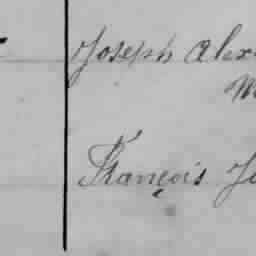 Joseph Alex
M
François J